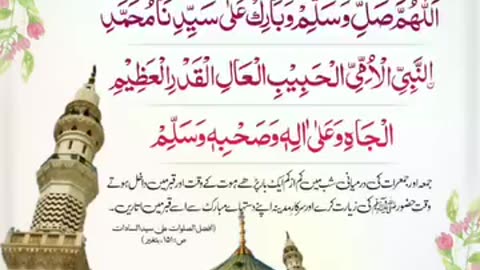 اَللّٰهُمَّ صَلِّ وَسَلِّمْ وَبَارِكْ عَلٰى سَيِّدِنَا مُحَمَّدِ
ۨالنَّبِيِّ الْاُمِّيِّ الْحَبِيْبِ الْعَالِي الْقَدْرِ الْعَظِيْمِ
الْجَاهِ وَعَلٰى اٰلِهٖ وَصَحْبِهٖ وَسَلِّمْ
جمعہ اور جمعرات کی درمیانی شب میں کم از کم ایک بار پڑھے موت کے وقت اور قبر میں داخل ہوتے
وقت حضور ﷺ کی زیارت کرے اور سرکار مدینہ اپنے دستہائے مبارک سے اسے قبر میں اتاریں۔
(افضل الصلوات على سيد السادات
ص: ۱۵۱، بتغیر)